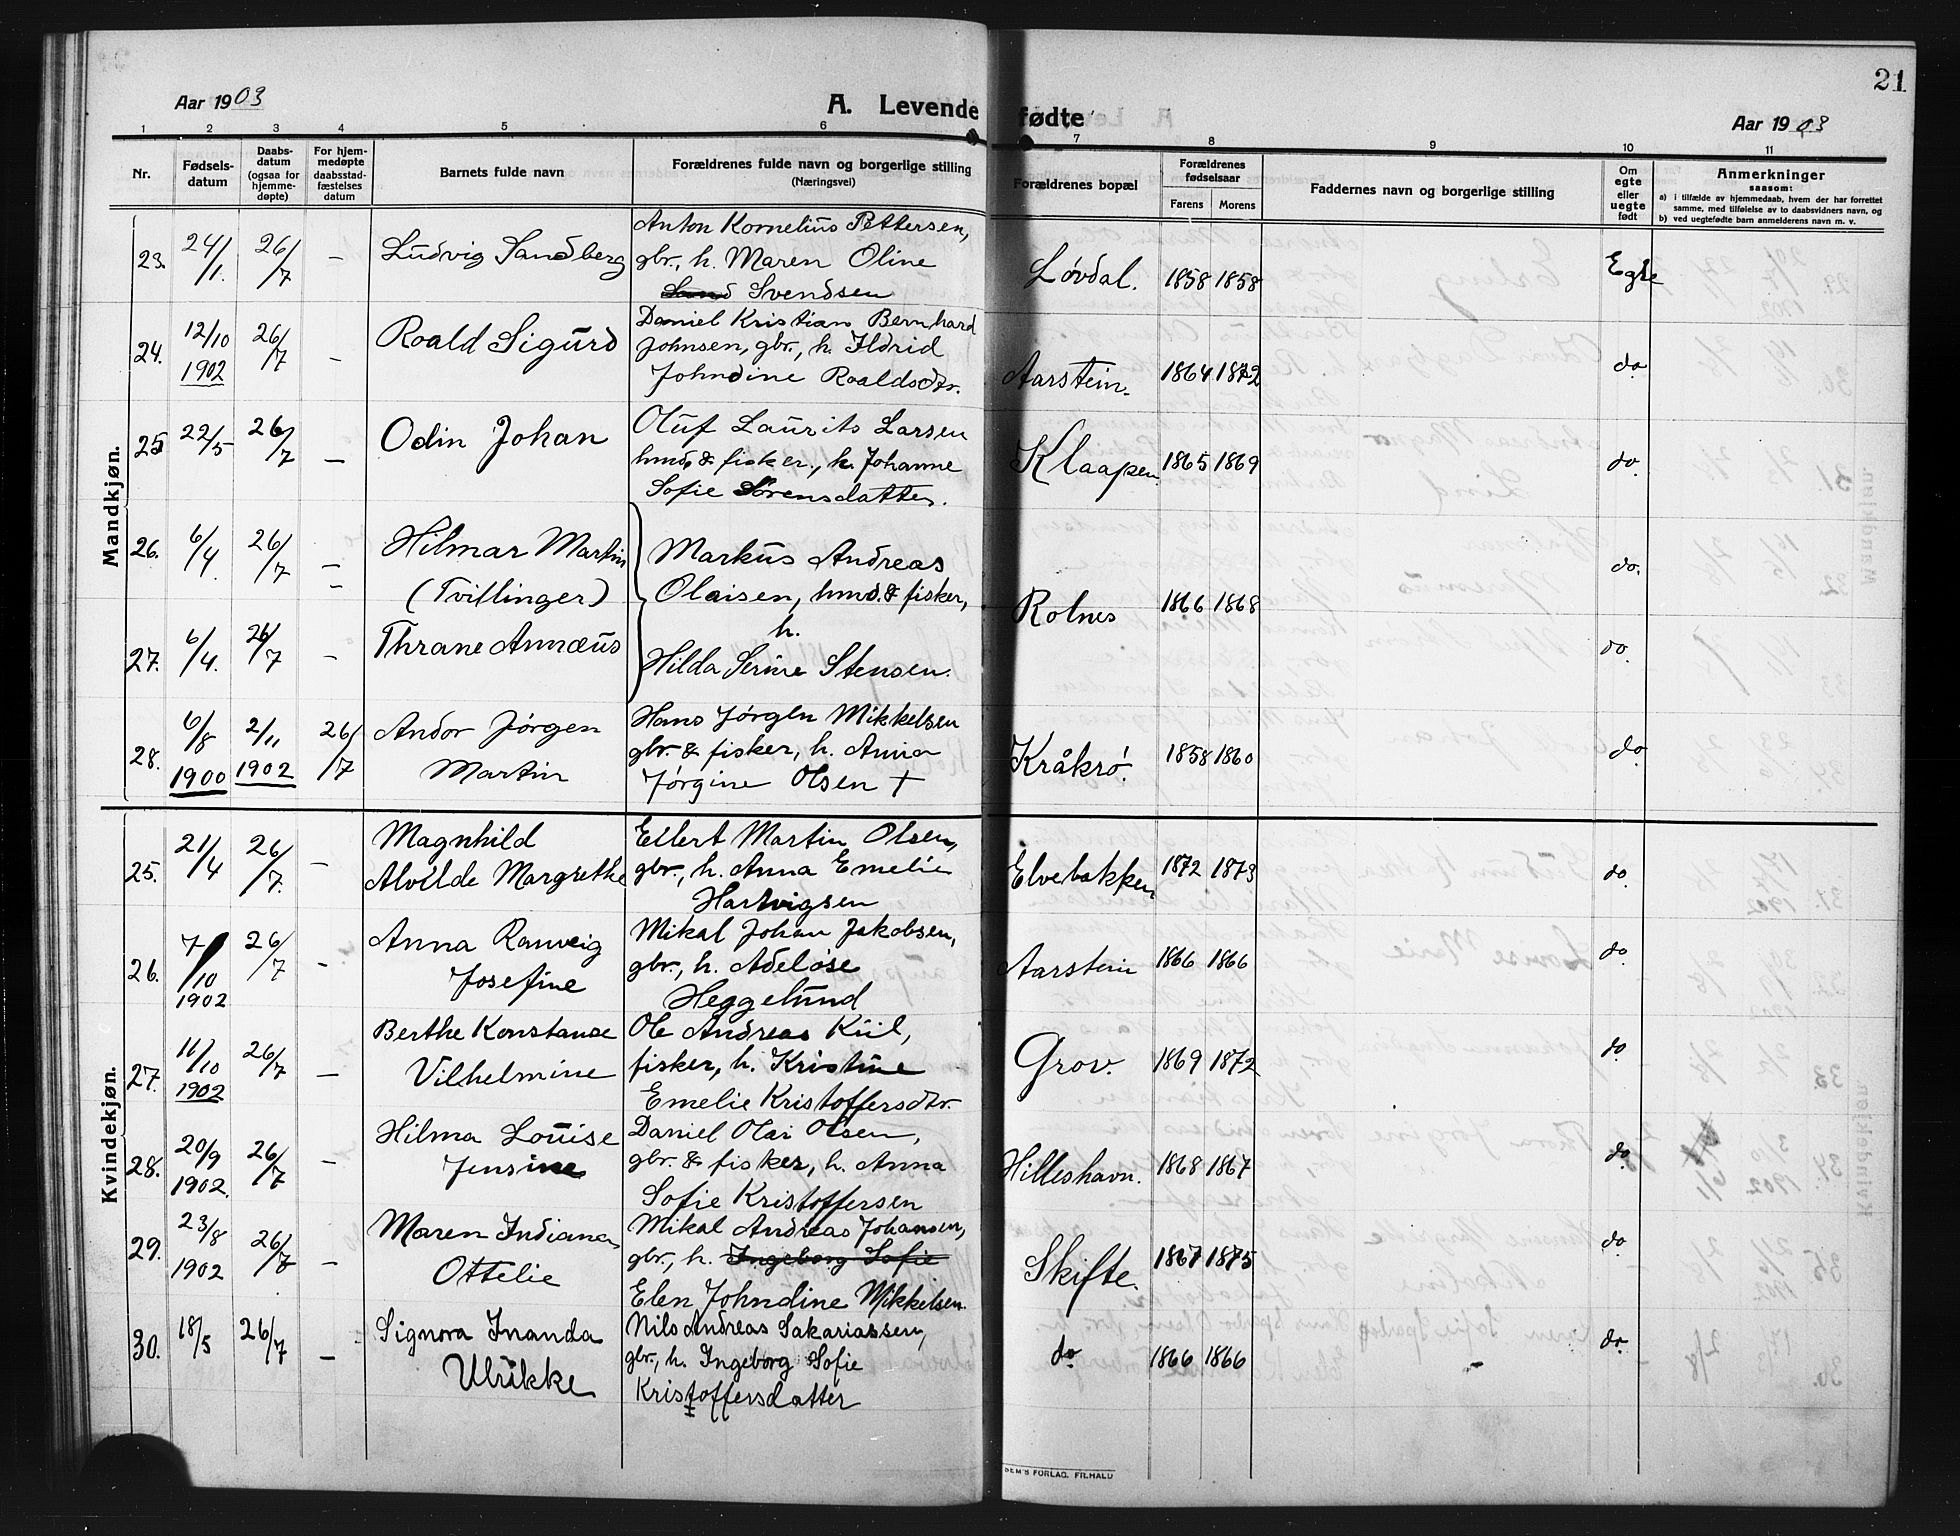 21
Aar 1903
A. Levende fødte
Aar 1903
1 2 3 4 5 6 7 8 9 10 11
Nr. | Fødsels-datum | Daabs-datum (ogsaa for hjemme-døpte) | For hjem-medøpte daabsstad-fæstelses datum | Barnets fulde navn | Forældrenes fulde navn og borgerlige stilling (Næringsvei) | Forældrenes bopæl | Forældrenes fødselsaar Farens Morens | Faddernes navn og borgerlige stilling | Om egte eller uegte født | Anmerkninger saasom:
a) i tilfælde av hjemmedaab, hvem der har forrettet samme, med tilføielse av to daabsvidners navn, og
b) ved uegtefødte barn anmelderens navn m. v.
Mandkjøn.
23. 24/1. 26/7 – Ludvig Sandberg
Anton Kornelius Pettersen,
gbr., h. Maren Oline
Sand Svendsen
Løvdal. 1858 1858 Egte
24. 12/10 1902 26/7 – Roald Sigurd
Daniel Kristian Bernhard
Johnsen, gbr., h. Ildrid
Johndine Roaldsdtr.
Aarstein. 1864 1872 do
25 22/5 26/7 – Odin Johan
Oluf Laurits Larsen
hmd. & fisker, h. Johanne
Sofie Sørensdatter.
Klaapen. 1865 1869 do.
26. 6/4. 26/7 – Hilmar Martin
(Tvillinger)
27. 6/4. 26/7 – Thrane Annæus
Markus Andreas
Olaisen, hmd. & fisker,
h.
Hilda Serine Stensen.
Rolnes 1866 1868 do.
do.
28. 6/8 1900 2/11 1902 26/7 Andor Jørgen
Martin
Hans Jørgen Mikkelsen
gbr. & fisker, h. Anna
Jørgine Olsen †
Kråkrø. 1858 1860 do
Kvindekjøn.
25. 21/4 26/7. – Magnhild
Alvilde Margrethe
Eilert Martin Olsen,
gbr., h. Anna Emelie
Hartvigsen
Elvebakken 1872 1873 do.
26. 7/10 1902 26/7 – Anna Ranveig
Josefine
Mikal Johan Jakobsen,
gbr., h. Adeløse
Heggelund
Aarstein 1866 1866 do.
27. 11/10 1902 26/7 – Berthe Konstanse
Vilhelmine
Ole Andreas Kiil,
fisker, h. Kristine
Emelie Kristoffersdtr.
Grov. 1869 1872 do.
28. 20/9 1902. 26/7 – Hilma Louise
Jensine
Daniel Olai Olsen,
gbr. & fisker, h. Anna
Sofie Kristoffersen
Hilleshavn. 1868 1867 do.
29. 23/8 1902 26/7 – Maren Indiana
Ottelie
Mikal Andreas Johansen,
gbr., h. Ingeborg Sofie
Elen Johndine Mikkelsen.
Skifte. 1867 1875 do.
30. 18/5 26/7 – Signora Inanda
Ulrikke
Nils Andreas Sakariassen,
gbr., h. Ingeborg Sofie
Kristoffersdatter
do 1866 1866 – do.
SEM'S FORLAG, FILHALD